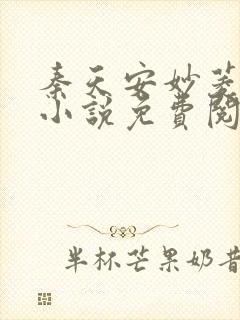 秦天安妙菱
小說免費閱
半杯芒果奶昔